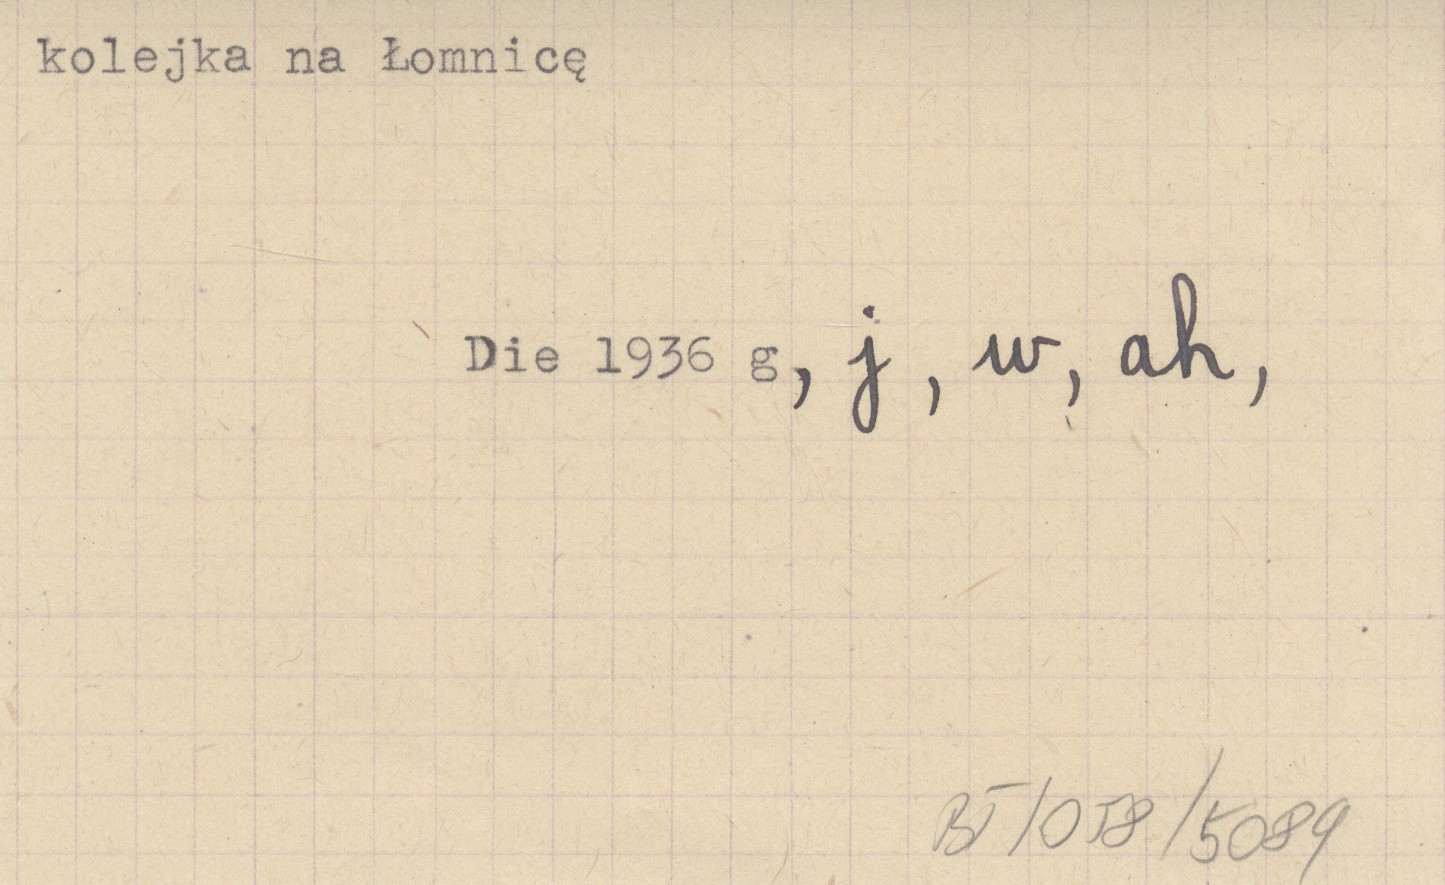 kolejka na Łomnicę
Die 1936 g, j, w, ah,
BT/058/5089